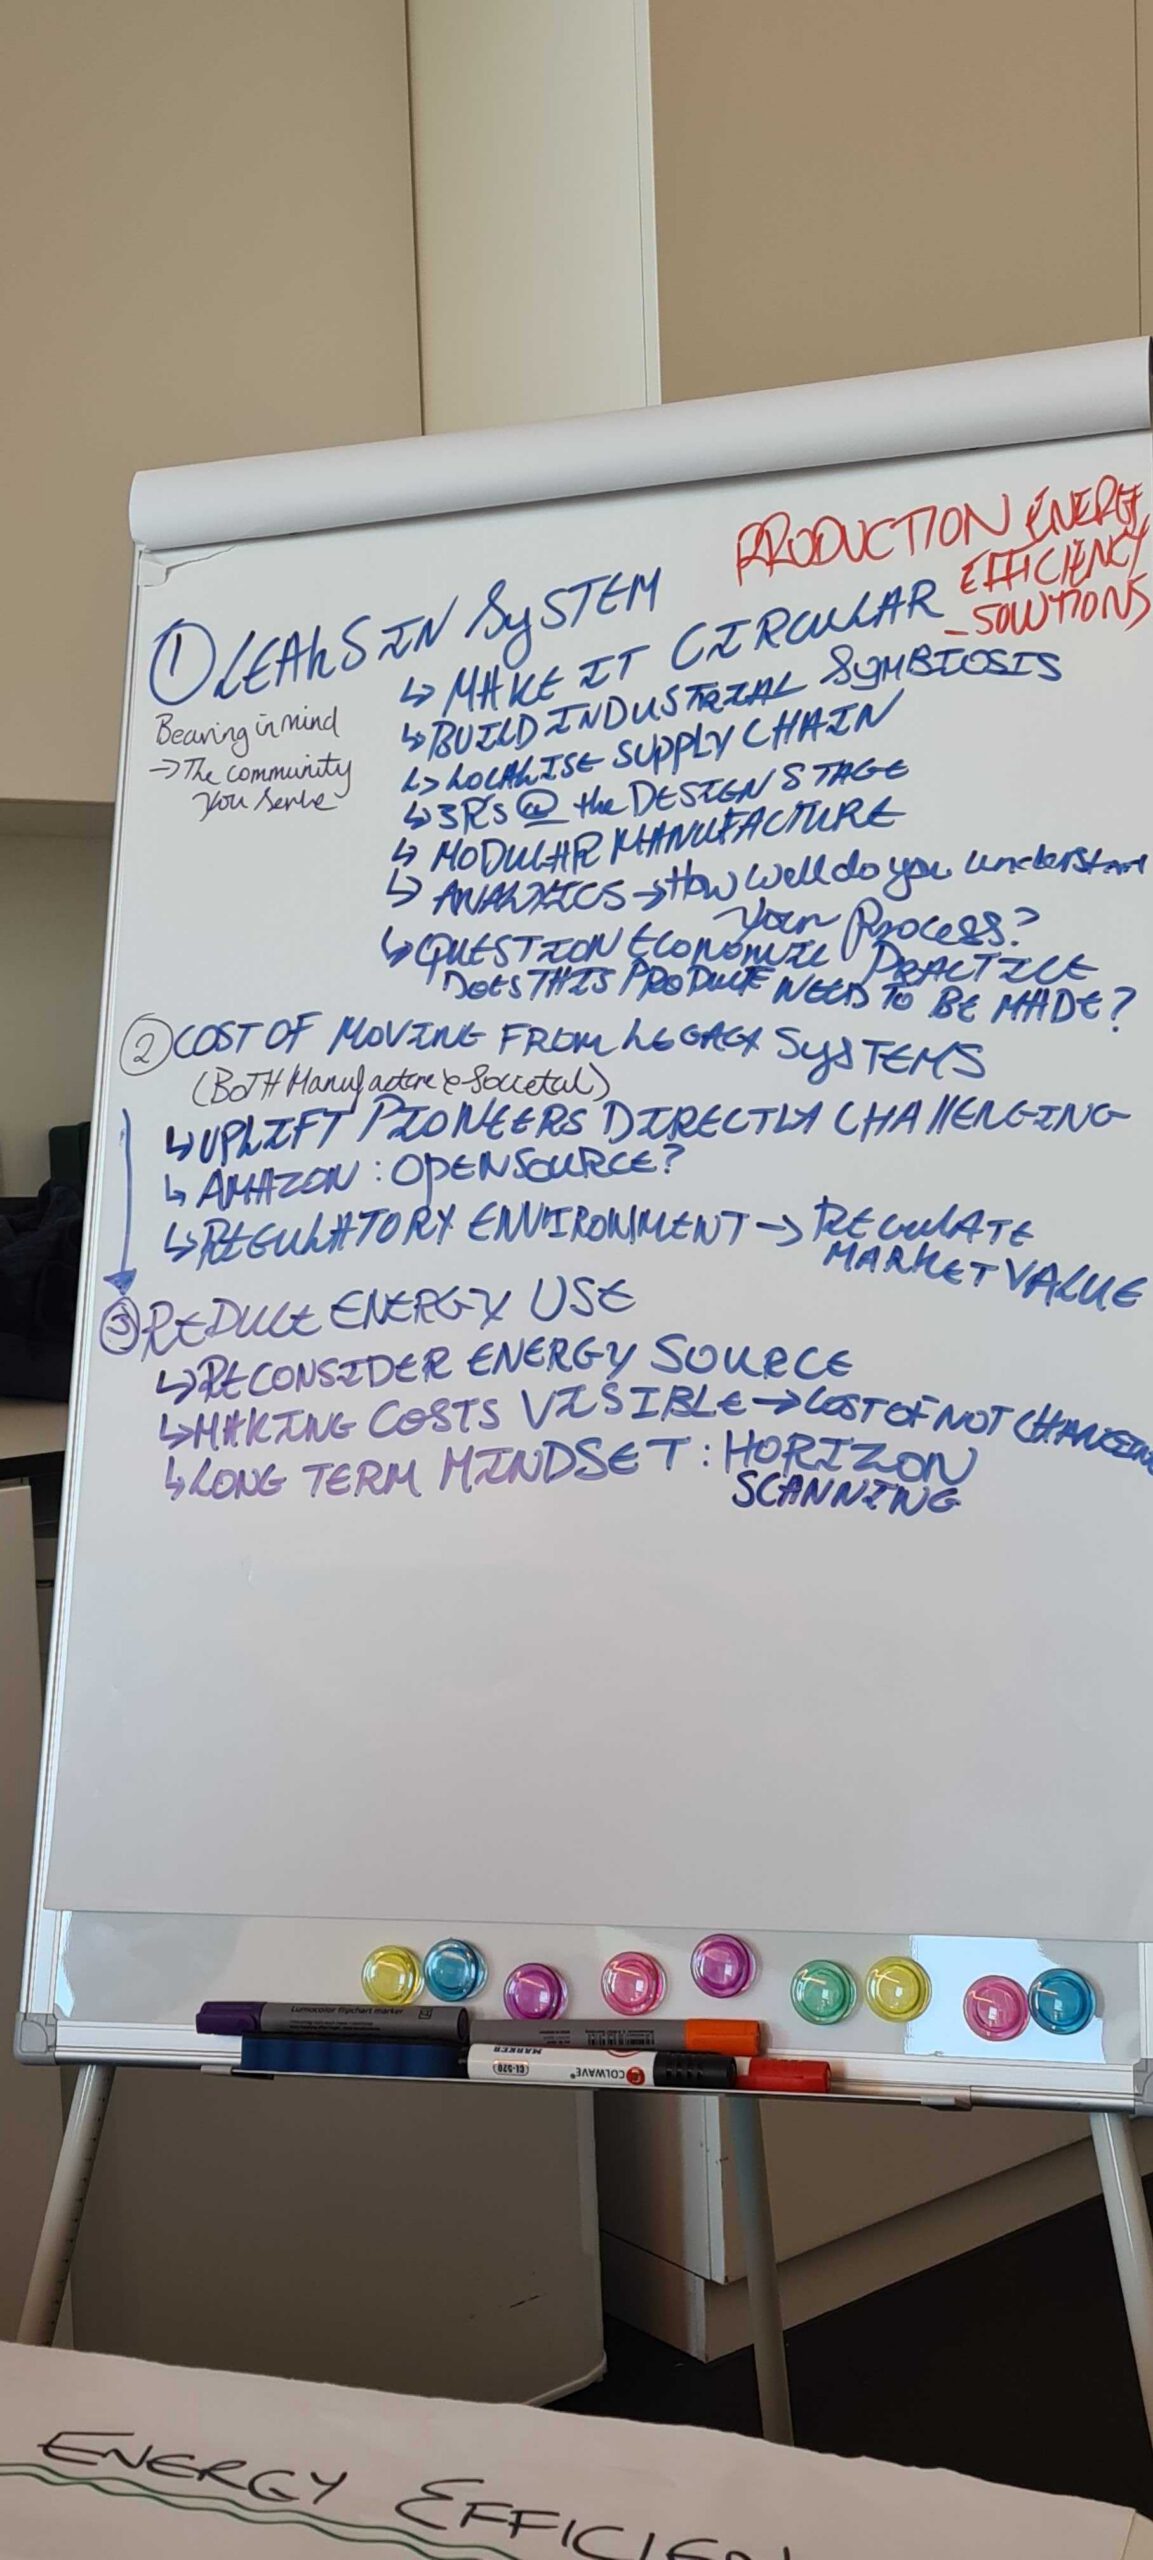 PRODUCTION ENERGY
EFFICIENCY
- SOLUTIONS
① LEAKS IN SYSTEM
Bearing in mind
→ The community
you serve
↳ MAKE IT CIRCULAR
↳ BUILD INDUSTRIAL SYMBIOSIS
↳ LOCALISE SUPPLY CHAIN
↳ 3R's @ the DESIGN STAGE
↳ MODULAR MANUFACTURE
↳ ANALYTICS → How well do you understan
your Process?
↳ QUESTION ECONOMIC PRACTICE
DOES THIS PRODUCT NEED TO BE MADE?
② COST OF MOVING FROM LEGACY SYSTEMS
(BOTH Manufacture & Societal)
↳ UPLIFT PIONEERS DIRECTLY CHALLENGING
↳ AMAZON : OPENSOURCE?
↳ REGULATORY ENVIRONMENT → REGULATE
MARKET VALUE
③ REDUCE ENERGY USE
↳ RECONSIDER ENERGY SOURCE
↳ MAKING COSTS VISIBLE → COST OF NOT CHANGING
↳ LONG TERM MINDSET : HORIZON
SCANNING
Lumocolor flipchart marker
COLWAVE®
MARKER
CL-520
ENERGY EFFICIEN